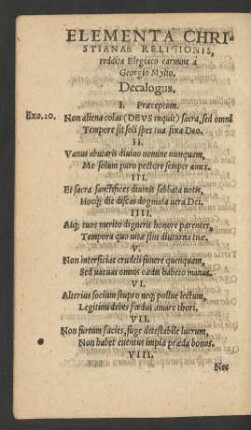 ELEMENTA CHRI-
STIANAE RELIGIONIS,
reddita Elegiaco carmine à
Georgio Mylio.
Decalogus.
I. Præceptum.
Exo. 20. Non aliena colas (DEVS inquit) sacra, sed omni
Tempore sit soli spes tua fixa Deo.
II.
Vanus abutaris diuino nomine nunquam,
Me solum puro pectore semper ames.
III.
Et sacra sanctifices diuinis sabbata uotis,
Hocq; die discas dogmata uera Dei.
IIII.
Atq; tuos merito digneris honore parentes,
Tempora quo uitæ sint diuturna tuæ.
V.
Non interficias crudeli funere quenquam,
Sed uacuas omnis cædis habeto manus.
VI.
Alterius socium stupro neq; pollue lectum,
Legitimi debes fœdus amare thori.
VII.
Non furtum facies, fuge detestabile lucrum,
Non habet euentus impia præda bonos.
VIII.
Nec